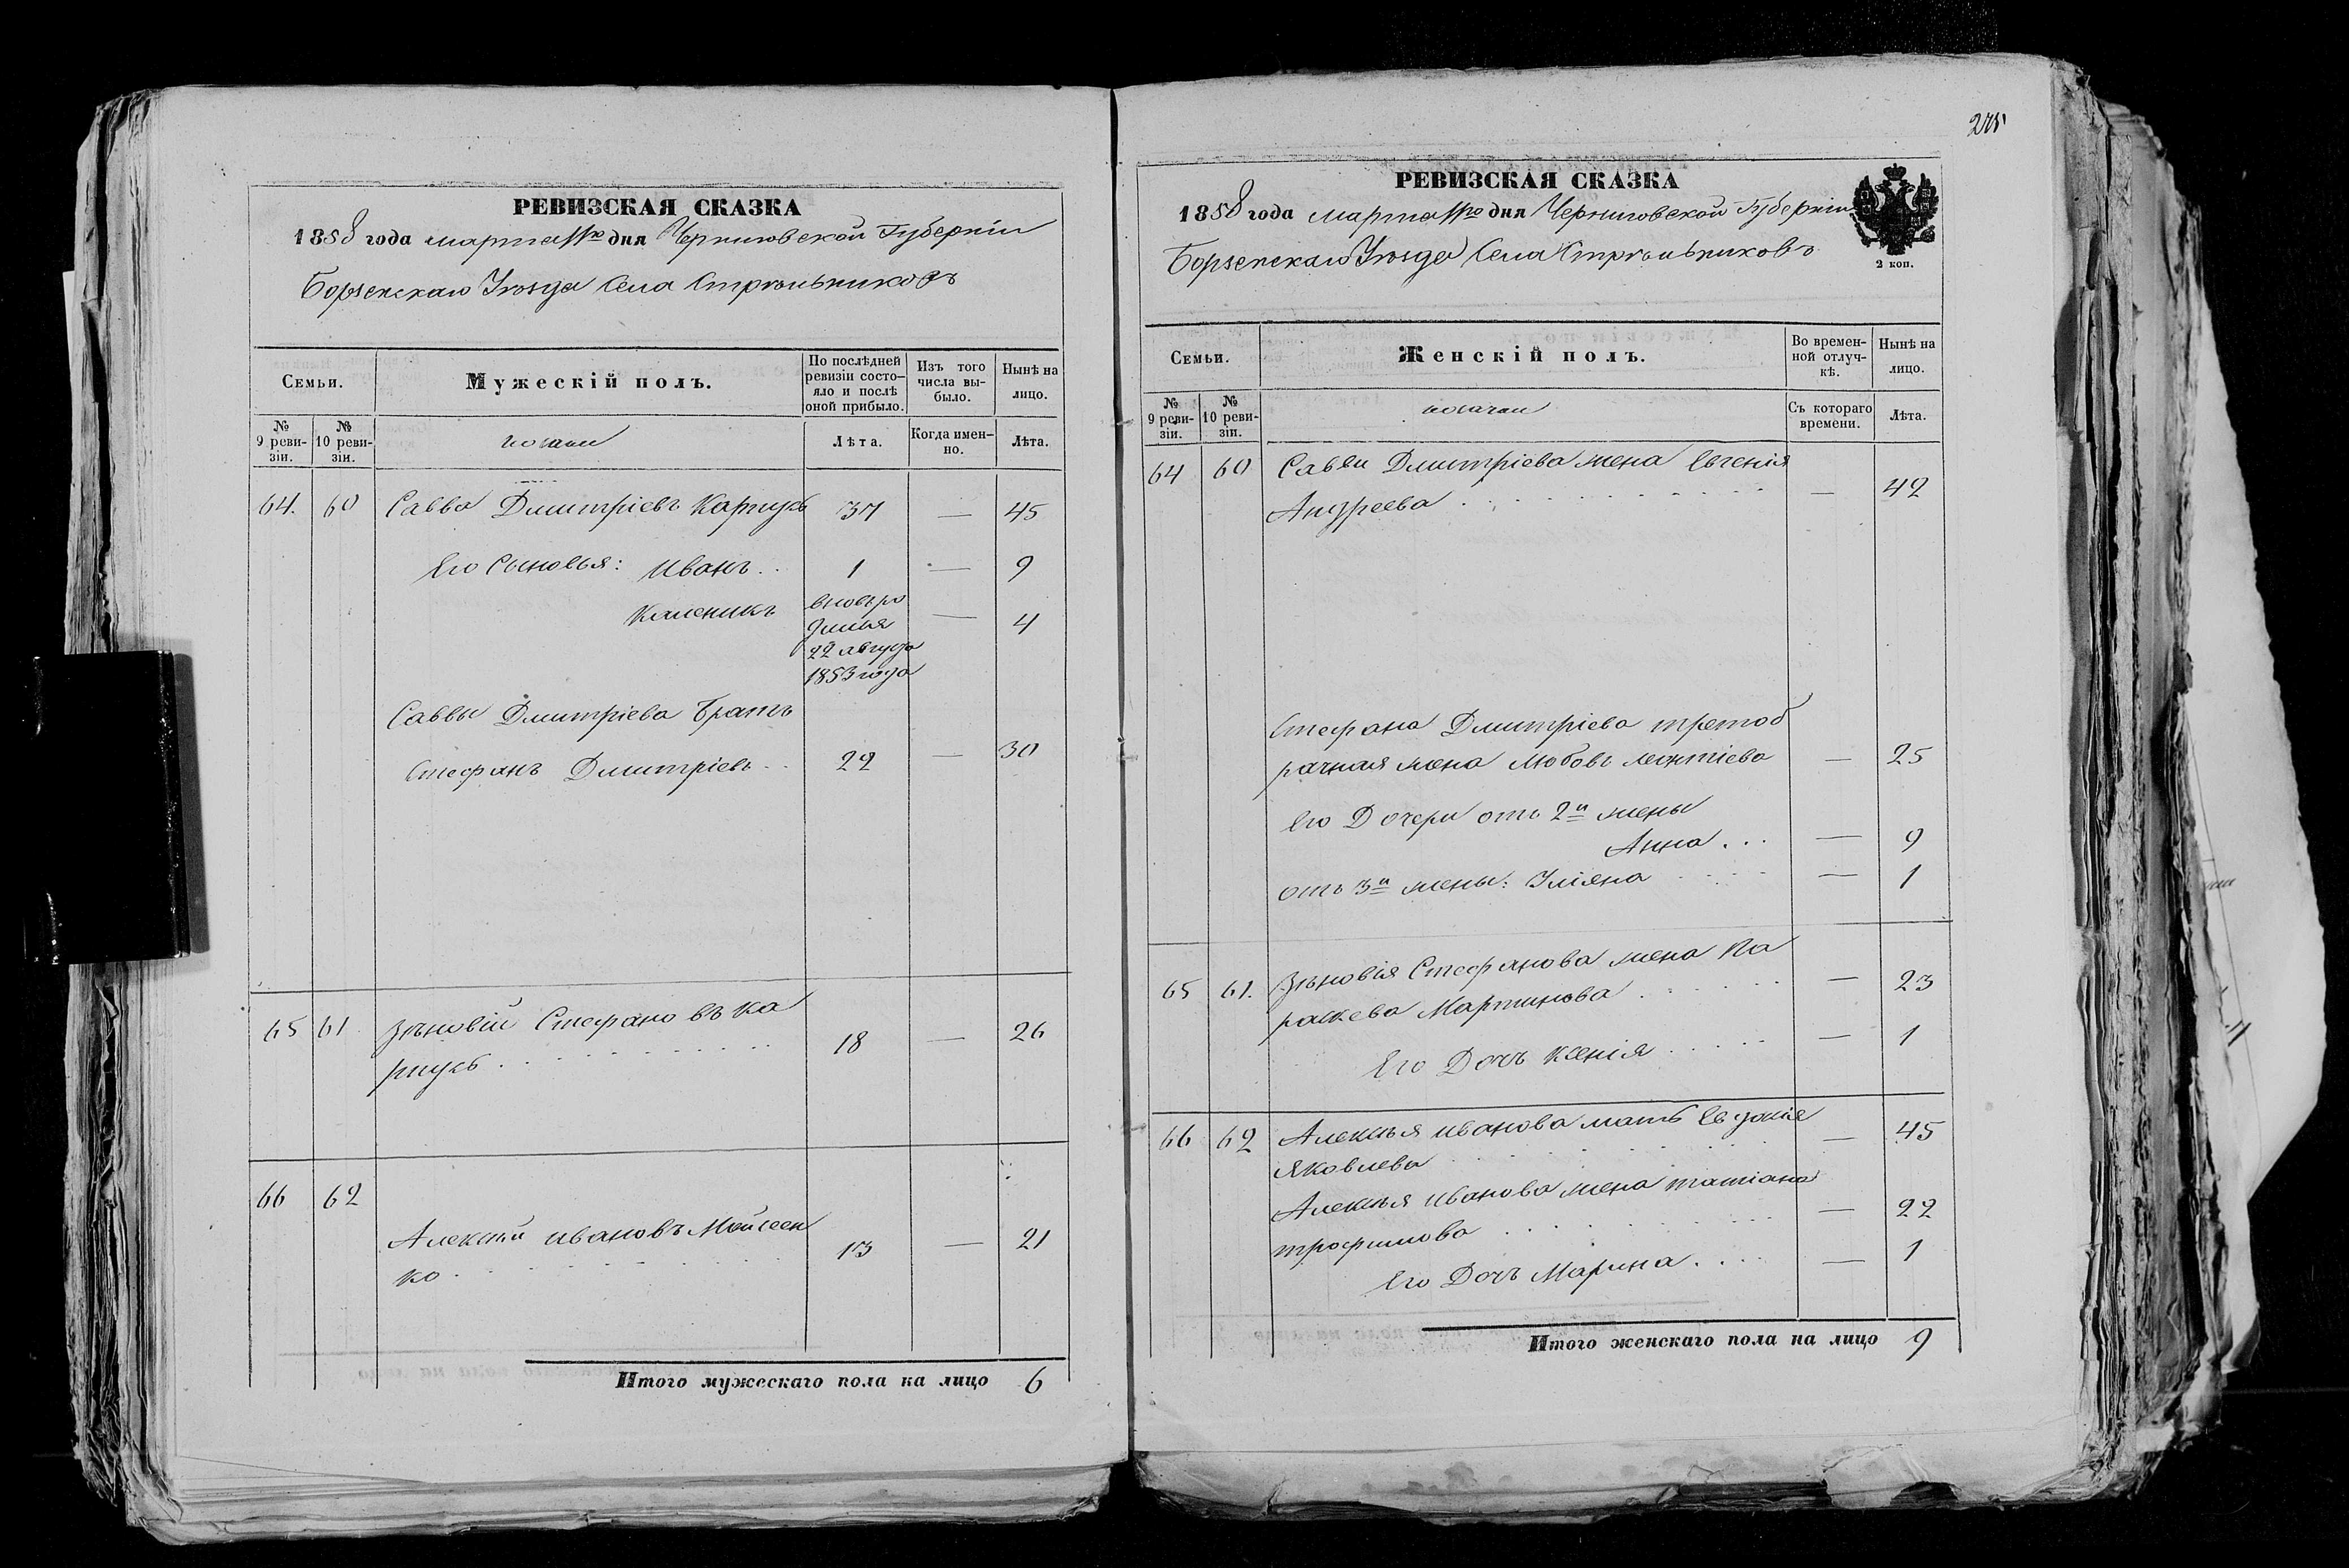 РЕВИЗСКАЯ СКАЗКА
1858 года марта дня Черниговской Губерніи
Борзенскаго Уѣзда Села Стрѣльниковъ
Семьи.
Мужескій полъ.
По послѣдней ревизіи состояло и послѣ оной прибыло.
Изъ того числа выбыло.
Нынѣ на лицо.
№ 9 ревизіи.
№ 10 ревизіи.
козаки
Лѣта.
Когда именно.
Лѣта.
64. 60 Савва Дмитріевъ Карпусь 37 — 45
Его Сыновья: Иванъ .. 1 — 9
Каленикъ вновь ро — 4
дился
22 августа
1853 года
Саввы Дмитріева Братъ
Стефанъ Дмитріевъ .. 22 — 30
65 61 Зѣновій Стефановъ Ка
рпусь . . . . . . . . . 18 — 26
66 62
Алексѣй Ивановъ Мойсеен
ко . . . . . . . . . 13 — 21
Итого мужескаго пола на лицо 6
275
РЕВИЗСКАЯ СКАЗКА
1858 года марта дня Черниговской Губерніи
Борзенскаго Уѣзда Села Стрѣльниковъ
2 коп.
Семьи.
Женскій полъ.
Во временной отлучкѣ.
Нынѣ на лицо.
№ 9 ревизіи.
№ 10 ревизіи.
козачки
Съ котораго времени.
Лѣта.
64 60 Саввы Дмитріева жена Евгенія
Андреева . . . . . . . . . — 42
Стефана Дмитріева третоб
рачная жена Любовь Леонтіева — 25
Его Дочери отъ 2й жены
Анна . . . — 9
отъ 3й жены: Уліяна . . . . — 1
65 61. Зѣновія Стефанова жена Па
раскева Мартинова . . . . . . — 23
Его Дочь Ксенія . . . . . — 1
66 62 Алексѣя Иванова мать Евдокія
Яковлева . . . . . . . — 45
Алексѣя Иванова жена Татіана
Трофимова . . . . . . . — 22
Его Дочь Марина . . . . — 1
Итого женскаго пола на лицо 9